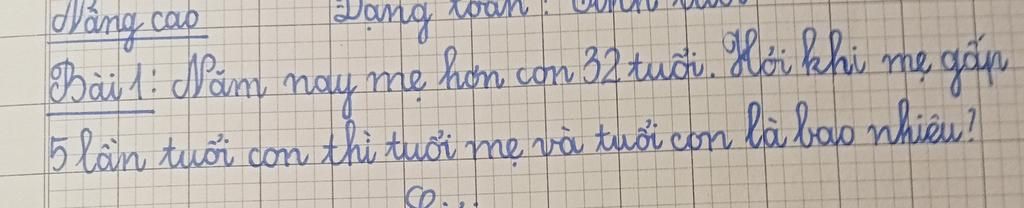 Nâng cao Dạng toán:
Bài 1: Năm nay mẹ hơn con 32 tuổi. Hỏi khi mẹ gấp
5 lần tuổi con thì tuổi mẹ và tuổi con là bao nhiêu?